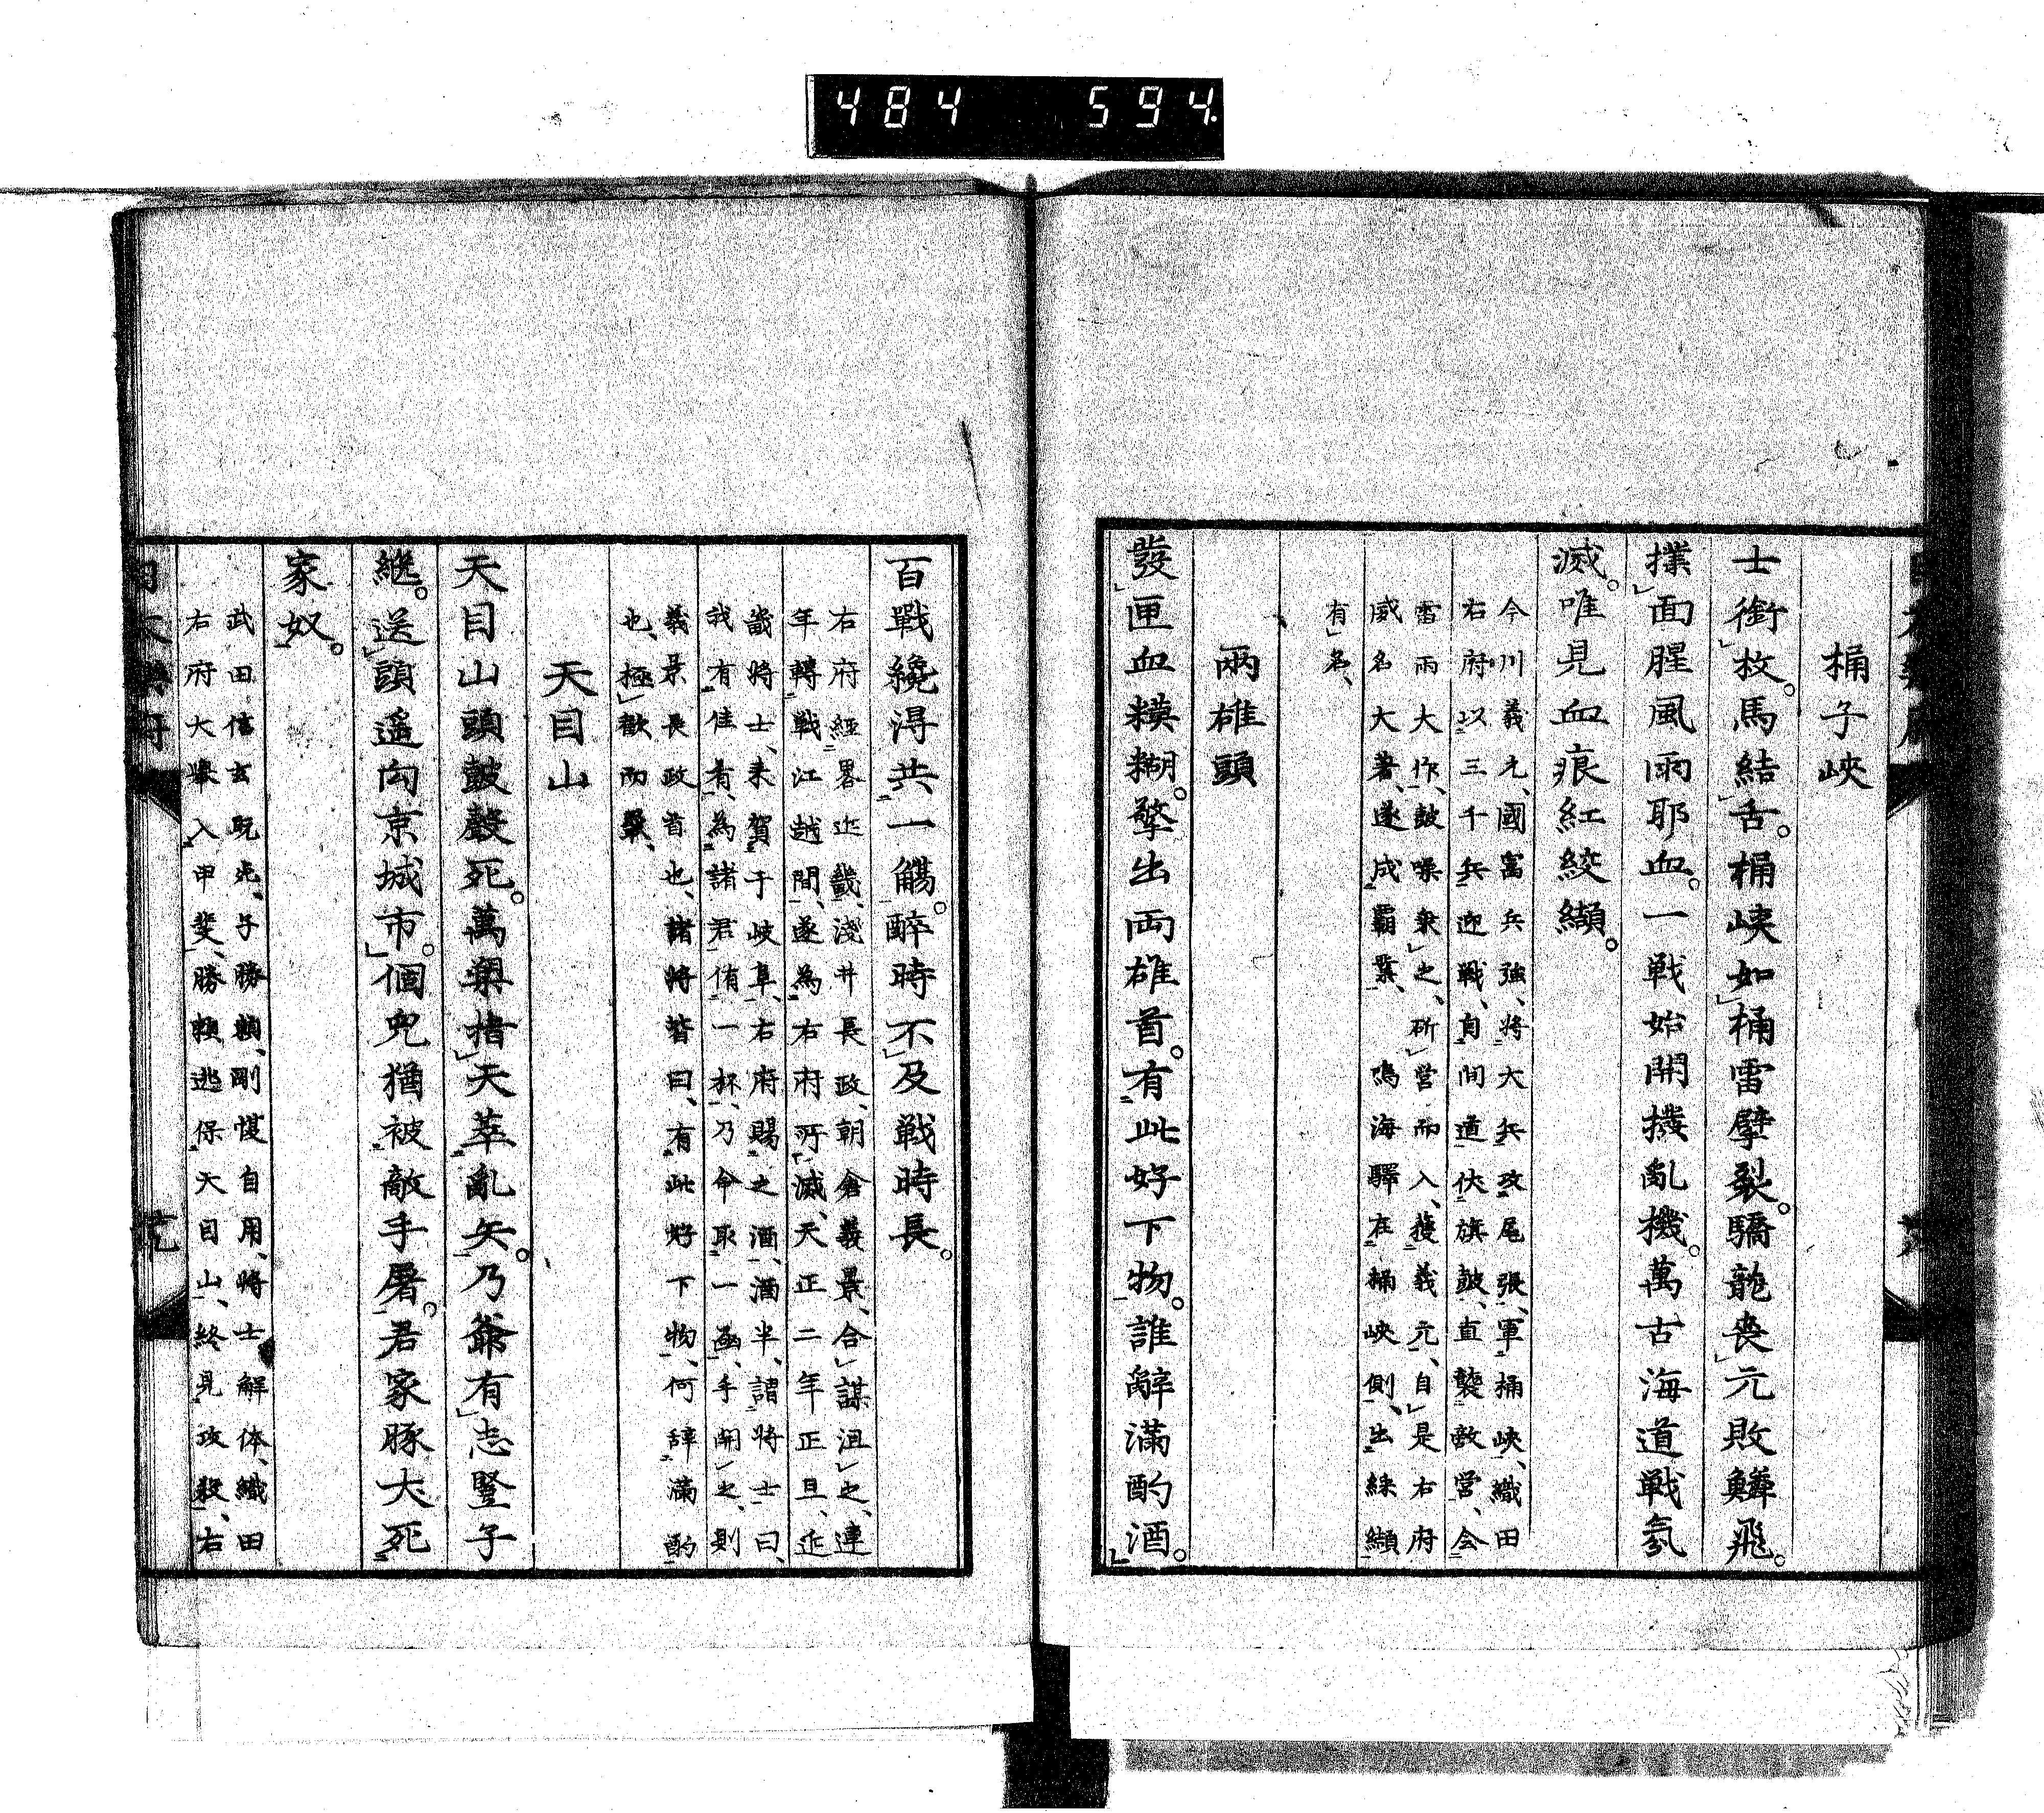 484 594
桶子峽
士銜枚。馬結舌。桶峽如桶雷擘裂。驕龍喪元敗鱗飛。
撲面腥風雨耶血。一戰始開撥亂機。萬古海道戰氛
滅。唯見血痕紅絞纈。
今川義元、國富兵強、將大兵攻尾張、軍桶峽、織田
右府以三千兵迎戰、自間道伏旗鼓、直襲敵營、会
雷雨大作、鼓噪乗之、斫營而入、獲義元、自是右府
威名大著、遂成霸業、鳴海驛在桶峽側、出絲纈
有名、
兩雄頭
發匣血模糊。擎出両雄首。有此好下物。誰辭滿酌酒。
百戰纔得共一觴。醉時不及戰時長。
右府經畧近畿、淺井長政、朝倉義景、合謀沮之、連
年轉戰江越間、遂為右府所滅、天正二年正旦、近
畿將士、来賀于岐阜、右府賜之酒、酒半、謂將士曰、
我有佳肴、為諸君侑一杯、乃命取一函、手開之、則
義景長政首也、諸將皆曰、有此好下物、何辞滿酌
也、極歡而罷、
天目山
天目山頭鼓聲死。萬輿指天萃亂矢。乃爺有志豎子
繼。送頭遥向京城市。個兜猶被敵手屠。君家豚犬死
家奴。
武田信玄既死、子勝頼、剛愎自用、將士解体、織田
右府大擧入甲斐、勝頼逃保天目山、終見攻殺、右